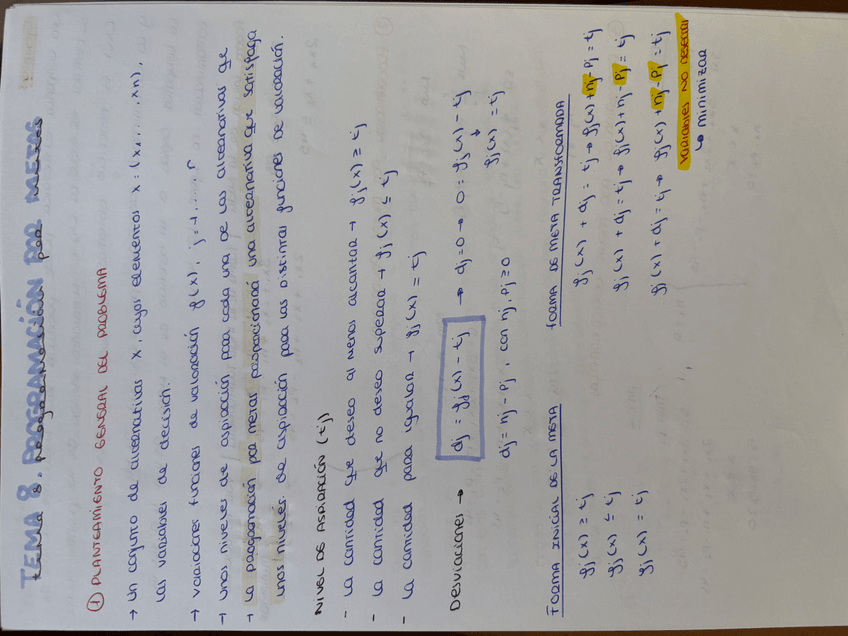 TEMA 8. PROGRAMACIÓN POR METAS
tema 8. programación por metas
① PLANTEAMIENTO GENERAL DEL PROBLEMA
→ un conjunto de alternativas X, cuyos elementos x = (x1, ..., xn),
las variables de decisión.
→ variaciones funciones de valoración fj(x), j=1,......r
→ unos niveles de aspiración para cada una de las alternativas
→ la programación por metas proporcionará una alternativa que satisfaga
unos niveles de aspiración para las distintas funciones de valoración.
NIVEL DE ASPIRACIÓN (tj)
- la cantidad que deseo al menos alcanzar → fj(x) ≥ tj
- la cantidad que no deseo superar → fj(x) ≤ tj
- la cantidad para igualar → fj(x) = tj
Desviaciones → dj = fj(x) - tj → dj=0 → 0 = fj(x) - tj
↓
fj(x) = tj
dj = nj - pj, con nj, pj ≥ 0
FORMA INICIAL DE LA META FORMA DE META TRANSFORMADA
fj(x) ≥ tj fj(x) + dj = tj → fj(x) + nj - pj = tj
fj(x) ≤ tj fj(x) + dj = tj → fj(x) + nj - pj = tj
fj(x) = tj fj(x) + dj = tj → fj(x) + nj - pj = tj
VARIABLES NO DESEADAS
↳ minimizar